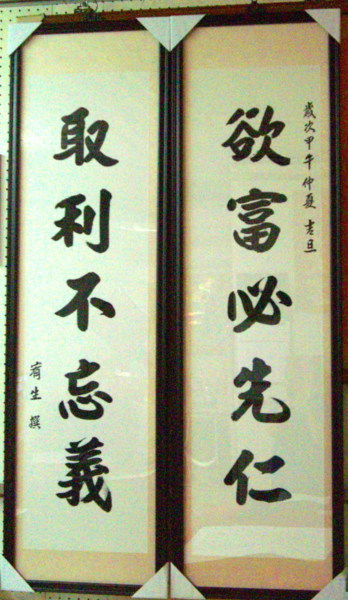 歲次甲午仲夏 吉旦
欲富必先仁
取利不忘義
有生 撰